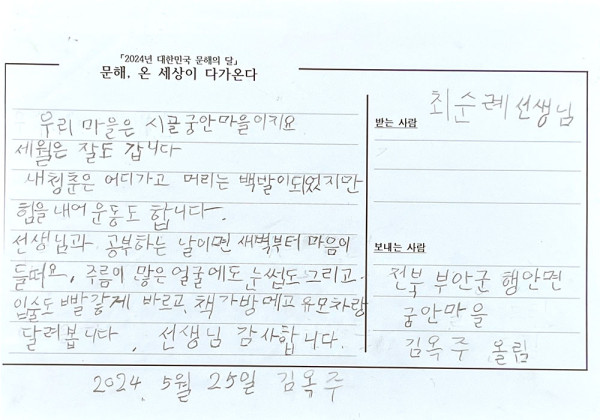 「2024년 대한민국 문해의 달」
문해, 온 세상이 다가온다
우리 마을은 시골궁안마을이지요
세월은 잘도 갑니다
내청춘은 어디가고 머리는 백발이되었지만
힘을 내어 운동도 합니다.
선생님과 공부하는 날이면 새벽부터 마음이
들떠요, 주름이 많은 얼굴에도 눈썹도 그리고.
입술도 빨갛게 바르고, 책가방메고 유모차랑
달려봅니다. 선생님 감사합니다.
받는 사람
최순례선생님
보내는 사람
전북 부안군 행안면
궁안마을
김옥주 올림
2024. 5월 25일 김옥주